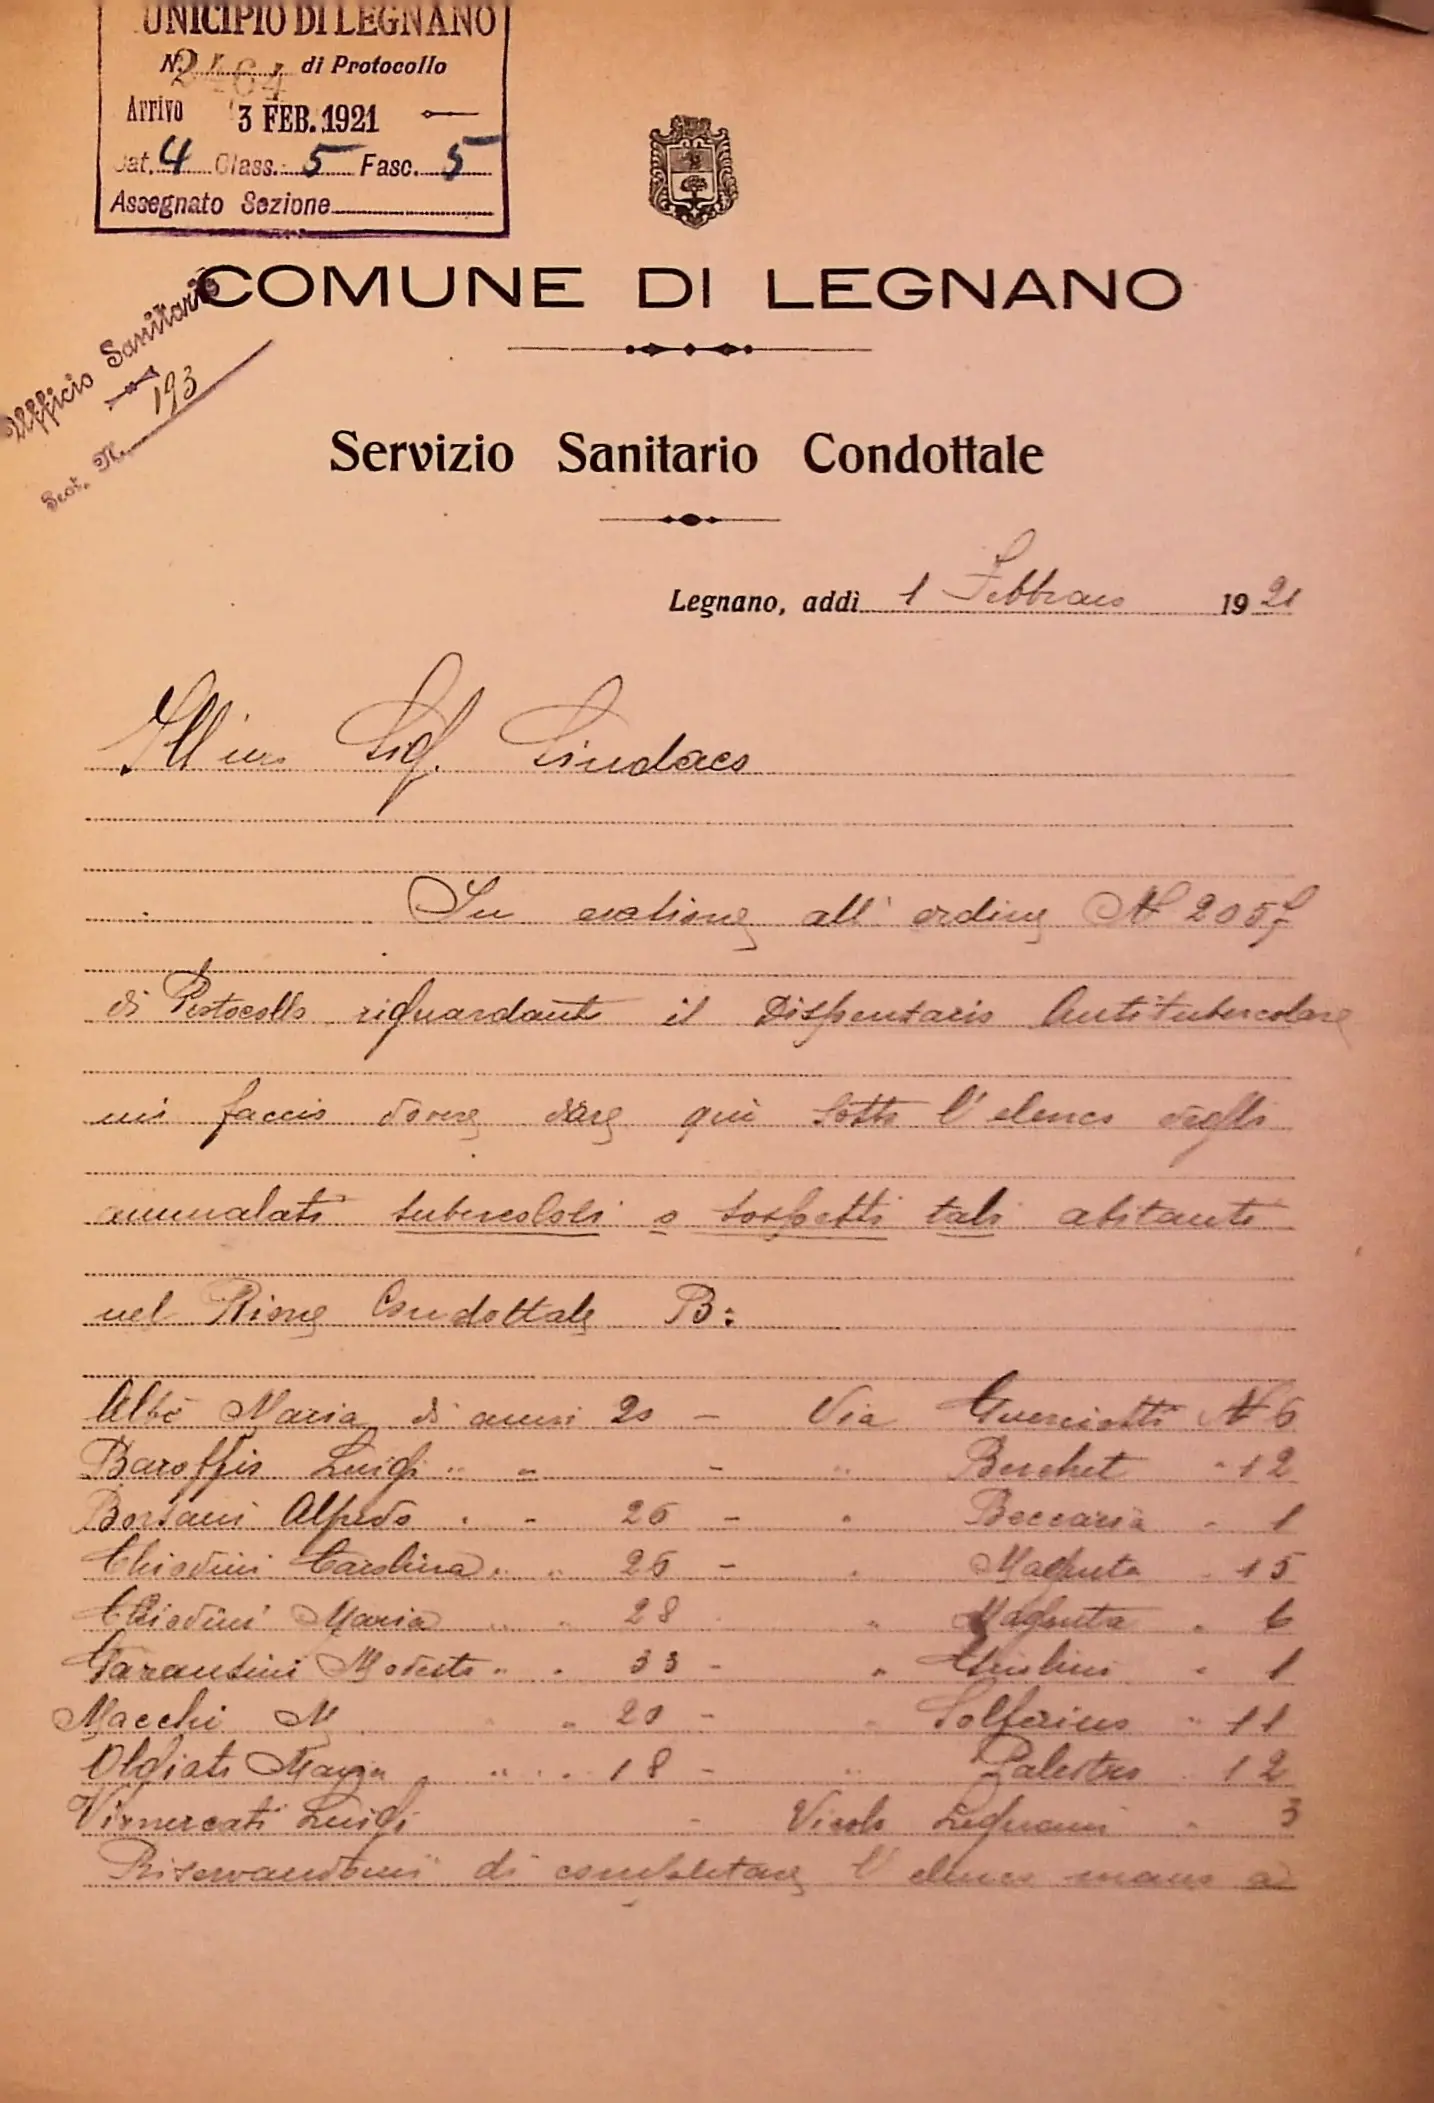 UNICIPIO DI LEGNANO
N. 2464 di Protocollo
Arrivo 3 FEB. 1921
Cat. 4 Class. 5 Fasc. 5
Assegnato Sezione
Ufficio Sanitario
N. 193
COMUNE DI LEGNANO
Servizio Sanitario Condottale
Legnano, addì 1 Febbraio 1921
Ill mo Sig. Sindaco
In evasione all' ordine N 2057
di Protocollo riguardante il Dispensario Antitubercolare
mi faccio dovere dare qui sotto l' elenco degli
ammalati tubercolosi o sospetti tali abitanti
nel Rione Condottale B:
Albè Maria di anni 20 - Via Guerciotti N 6
Baroffio Luigi " " - " Berchet " 12
Borsani Alfredo " " 26 - " Beccaria " 1
Chiodini Carolina " " 26 - " Magenta " 15
Chiodini Maria " " 28 " Magenta " 6
Tarantini Modesto " " 33 - " " 1
Macchi M " " 20 - " Solferino " 11
Olgiati " " 18 - " Palestro 12
Vimercati Luigi - Vicolo Legnani " 3
Riservandomi di completare l' elenco mano a